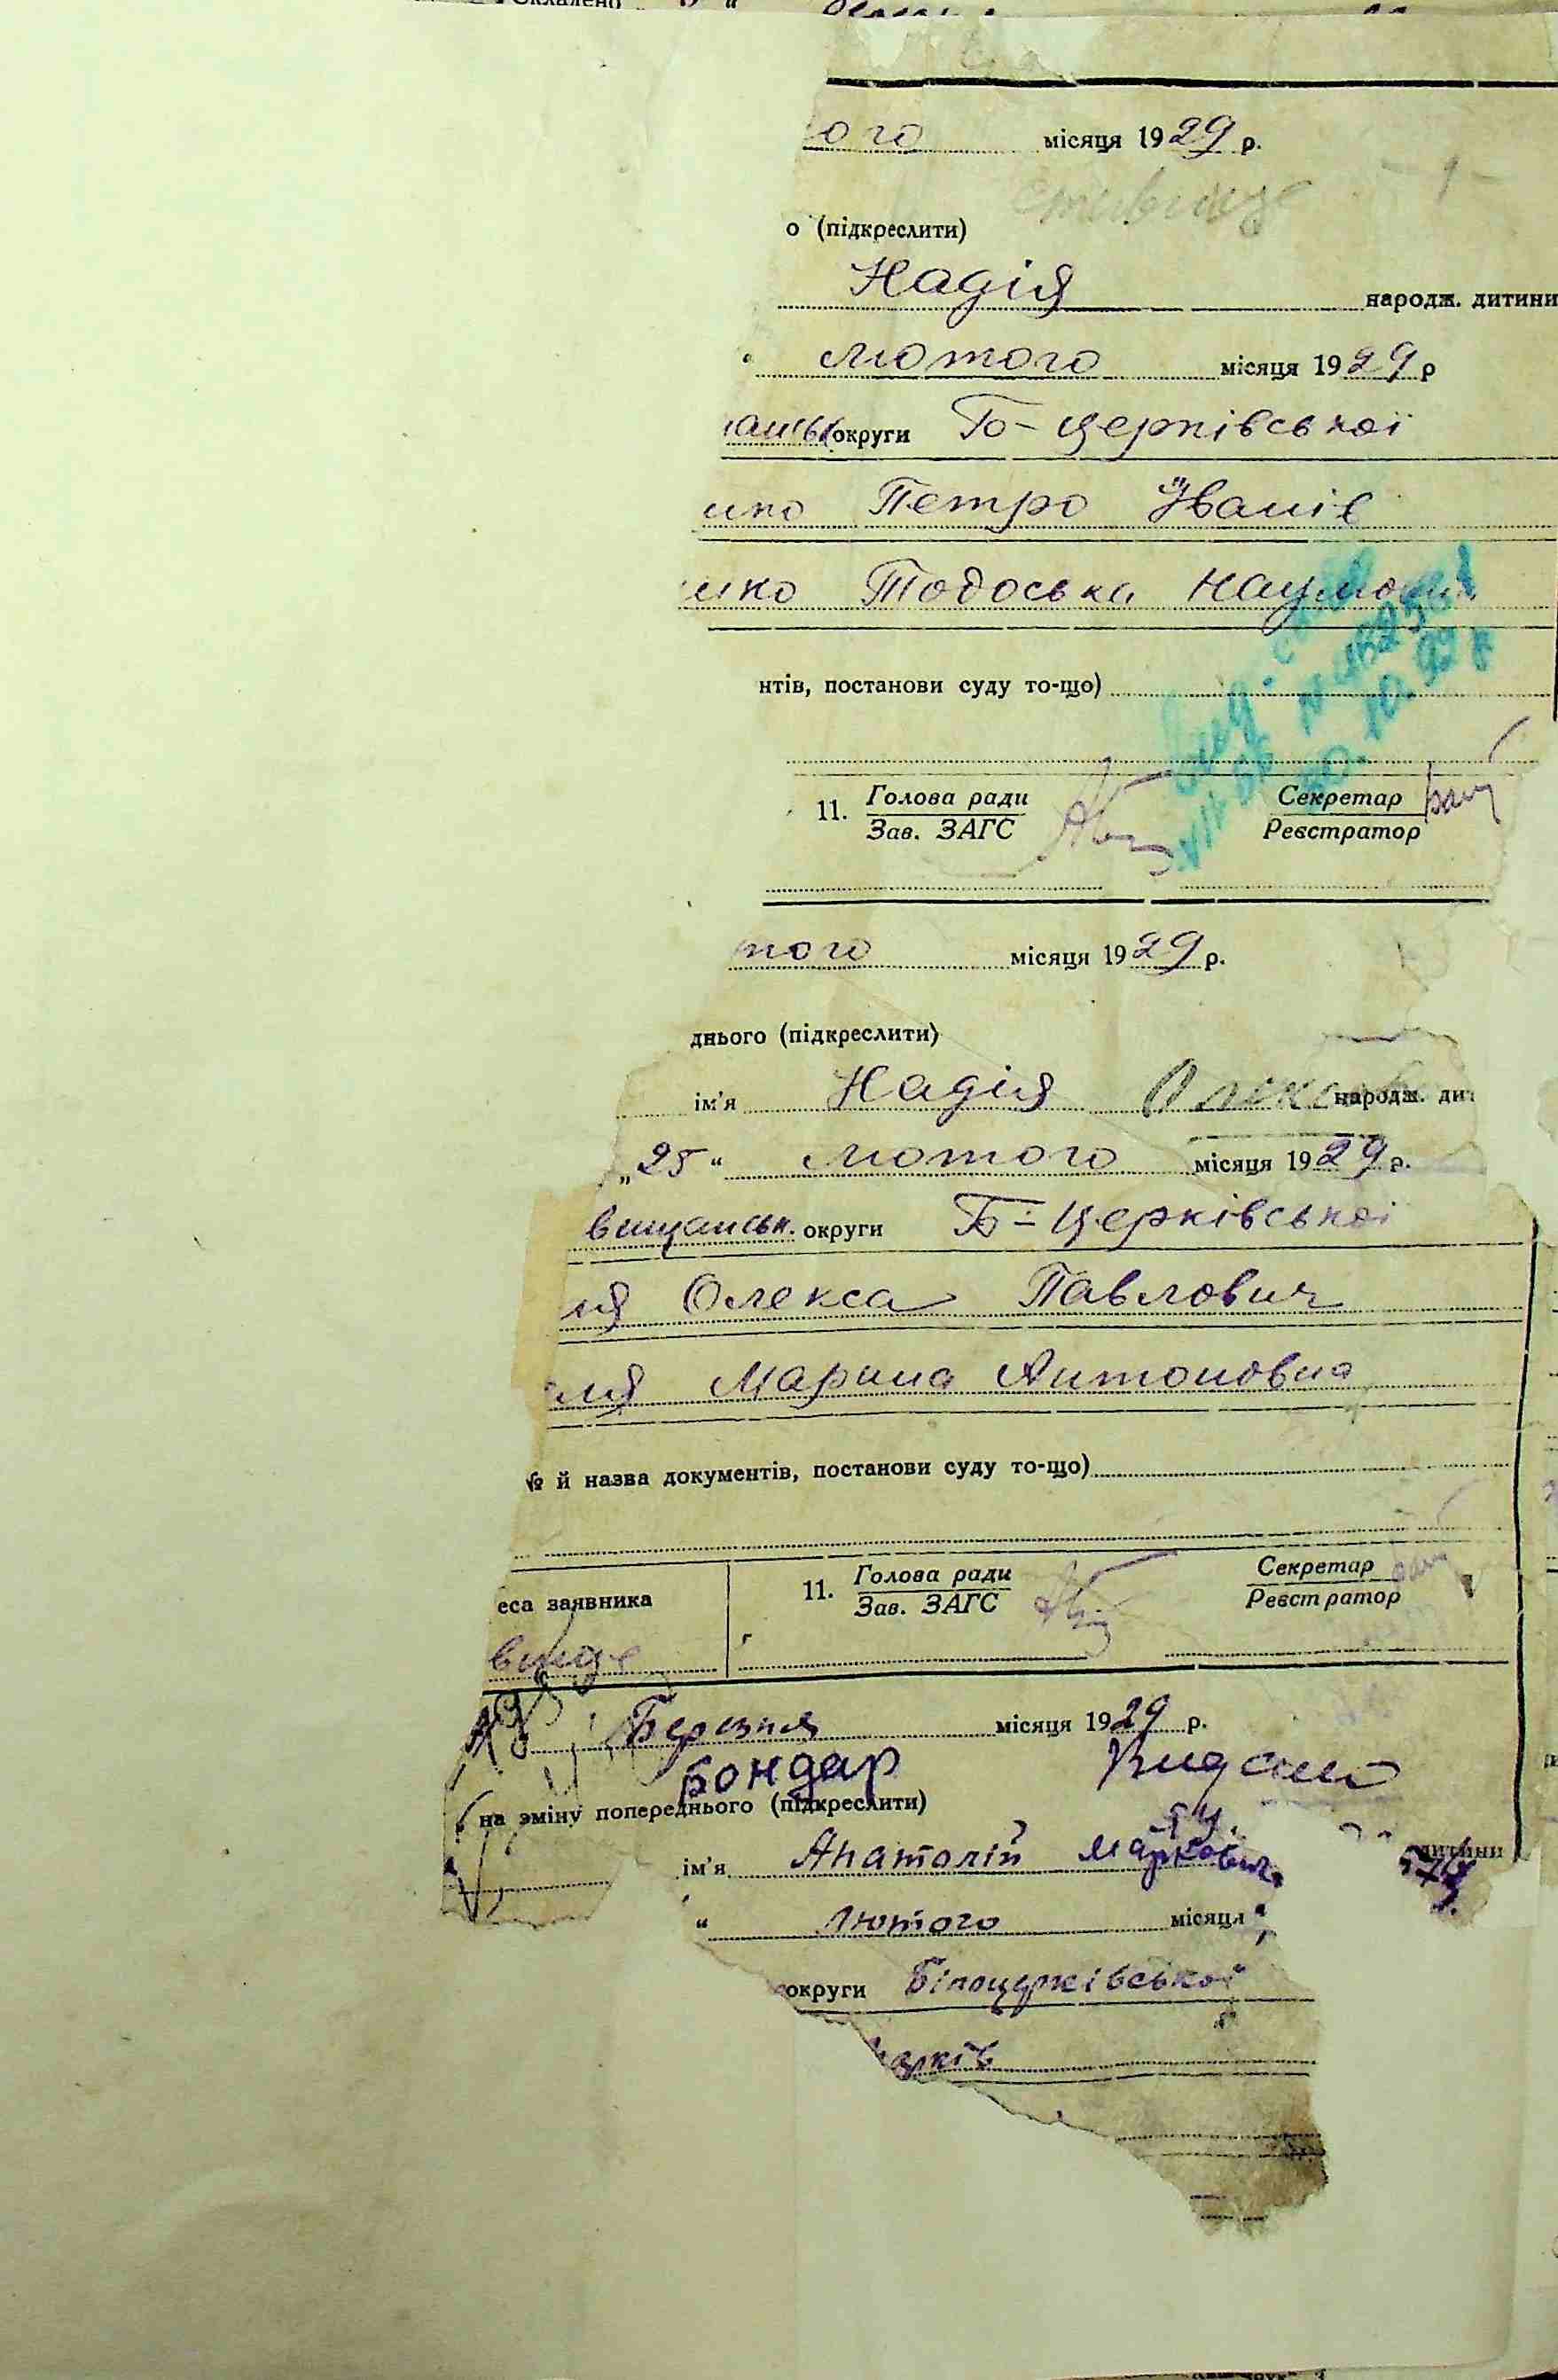 ого місяця 1929 р.
о (підкреслити)
Надія народж. дитини
" лютого місяця 1929 р
округи Б-церківської
нко Петро Іванів
нко Тодоська Наумовн
нтів, постанови суду то-що)
11. Голова ради Секретар
Зав. ЗАГС Реєстратор
того місяця 1929 р.
днього (підкреслити)
ім'я Надія народж. дит
„25" лютого місяця 1929 р.
вищанськ. округи Б-Церківської
ля Олекса Павлович
ля Марина Антоновна
№ й назва документів, постанови суду то-що)
11. Голова ради Секретар
еса заявника Зав. ЗАГС Реєстратор
вище
Березня місяця 1929 р.
Бондар
на зміну попереднього (підкреслити)
ім'я Анатолій Маркович дитини
" Лютого місяця
округи Білоцерківської
арків